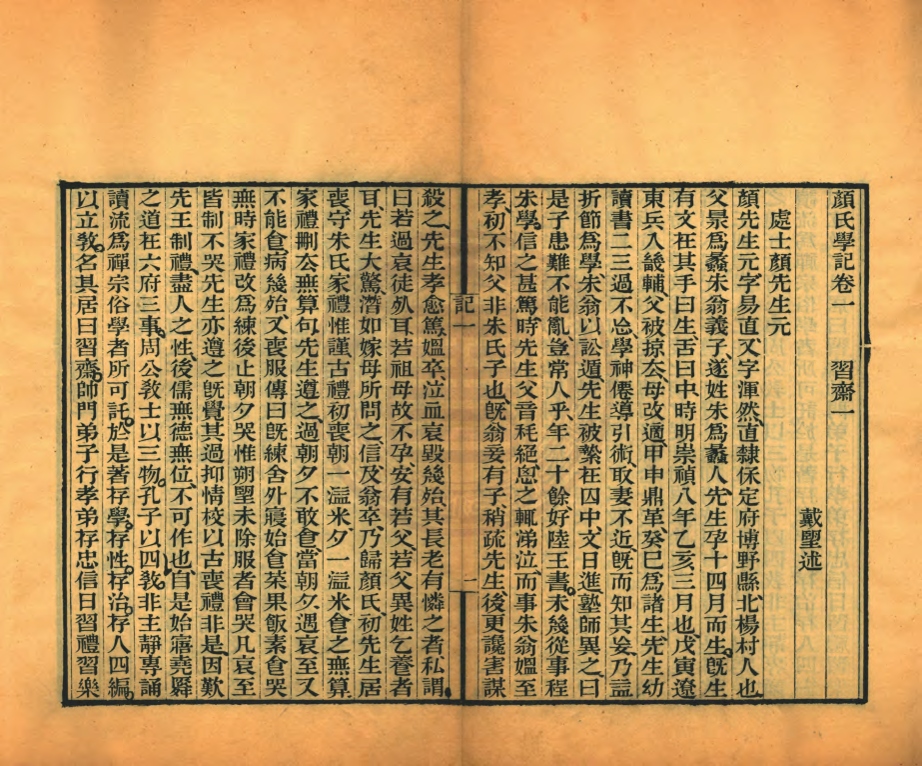 顏氏學記卷一 習齋一
戴朢述
處士顏先生元
顏先生元字易直又字渾然直隸保定府博野縣北楊村人也
父㫤爲蠡朱翁義子遂姓朱爲蠡人先生孕十四月而生旣生
有文在其手曰生舌曰中時明崇禎八年乙亥三月也戊寅遼
東兵入畿輔父被掠厺母改適甲申鼎革癸巳爲諸生先生幼
讀書二三過不忘學神僊導引術取妻不近旣而知其妄乃益
折節爲學朱翁以訟遁先生被繫在囚中文日進塾師異之曰
是子患難不能亂豈常人乎年二十餘好陸王書未幾從事程
朱學信之甚篤時先生父音秏絕恖之輒涕泣而事朱翁媼至
孝初不知父非朱氏子也旣翁妾有子稍疏先生後更讒害謀
殺之先生孝愈篤媼卒泣血哀毀幾殆其長老有憐之者私謂
曰若過哀徒死耳若祖母故不孕安有若父若父異姓乞養者
耳先生大驚潛如嫁母所問之信及翁卒乃歸顏氏初先生居
喪守朱氏家禮惟謹古禮初喪朝一溢米夕一溢米食之無算
家禮刪厺無算句先生遵之過朝夕不敢食當朝夕遇哀至又
不能食病幾殆又喪服傳曰旣練舍外寢始食菜果飯素食哭
無時家禮改爲練後止朝夕哭惟朔朢未除服者會哭凡哀至
皆制不哭先生亦遵之旣覺其過抑情校以古喪禮非是因歎
先王制禮盡人之性後儒無德無位不可作也自是始寤堯舜
之道在六府三事周公敎士以三物孔子以四敎非主靜專誦
讀流爲禪宗俗學者所可託於是著存學存性存治存人四編
以立敎名其居曰習齋帥門弟子行孝弟存忠信日習禮習樂
記一
一